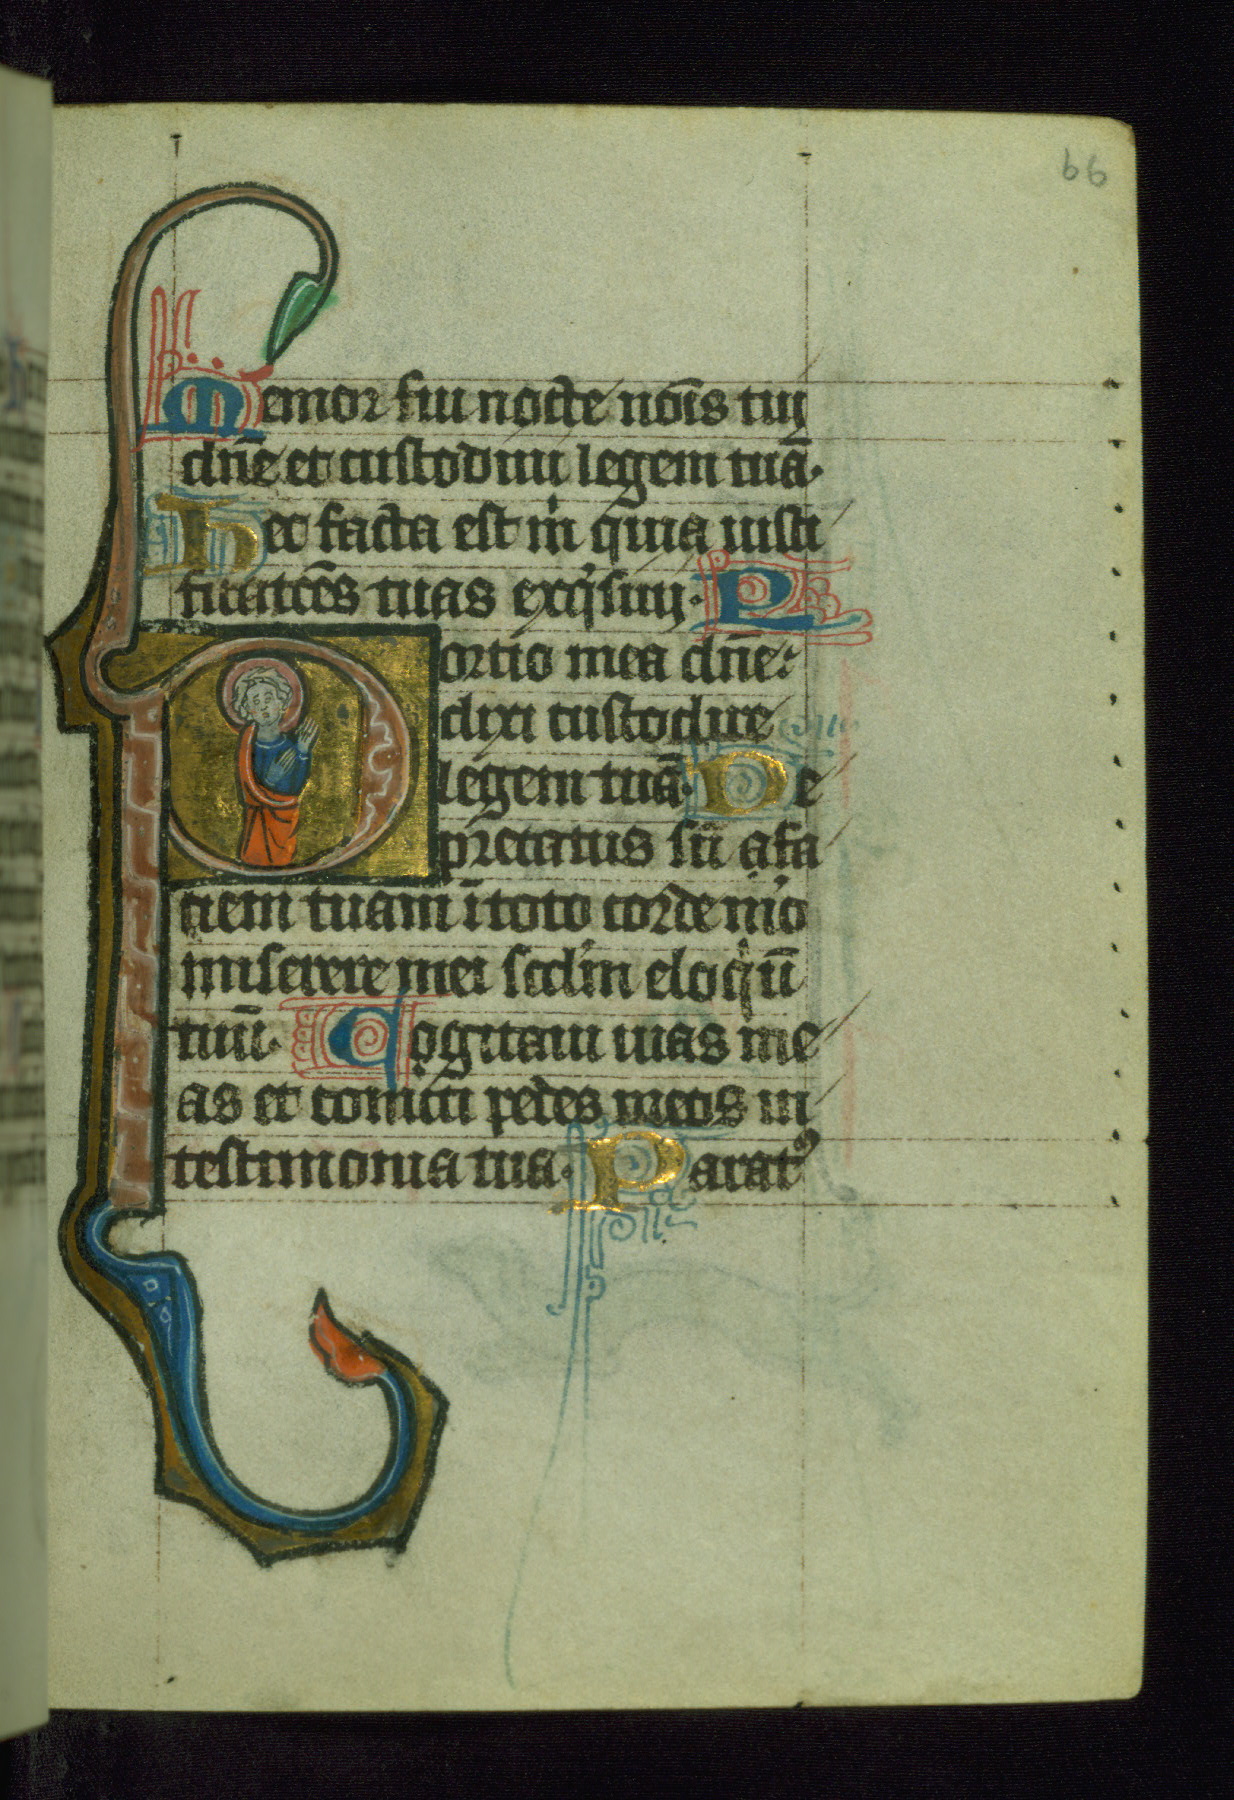 66
Memor fui nocte nõis tuj
dñe et custodiui legem tuã.
Hec facta est m̍ quia iusti
ficatiões tuas exq̍siui. P
ortio mea dñe:
dixi custodire
legem tuã. De
precatus sũ a fa
ciem tuam ĩ toto corde mͦo
miserere mei scd̃m eloq̍ũ
tuũ. Cogitaui uias me
as et conuti pedes meos in
testimonia tua. Paratꝰ